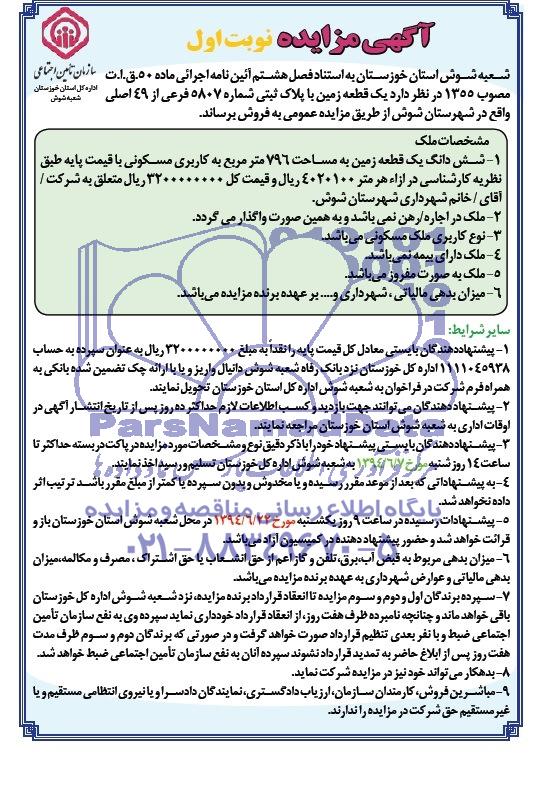 آگهی مزایده نوبت اول
سازمان تأمین اجتماعی
اداره کل استان خوزستان
شعبه شوش
شعبه شوش استان خوزستان به استناد فصل هشتم آئین نامه اجرائی ماده ۵۰.ق.ا.ت
مصوب ۱۳۵۵ در نظر دارد یک قطعه زمین با پلاک ثبتی شماره ۵۸۰۷ فرعی از ۴۹ اصلی
واقع در شهرستان شوش از طریق مزایده عمومی به فروش برساند.
مشخصات ملک
۱- شش دانگ یک قطعه زمین به مساحت ۷۹۶ متر مربع به کاربری مسکونی با قیمت پایه طبق
نظریه کارشناسی در ازاء هر متر ۴۰۲۰۱۰۰ ریال و قیمت کل ۳۲۰۰۰۰۰۰۰۰ ریال متعلق به شرکت /
آقای / خانم شهرداری شهرستان شوش.
۲- ملک در اجاره/رهن نمی باشد و به همین صورت واگذار می گردد.
۳- نوع کاربری ملک مسکونی می‌باشد.
۴- ملک دارای بیمه نمی‌باشد.
۵- ملک به صورت مفروز می‌باشد.
۶- میزان بدهی مالیاتی ، شهرداری و.... بر عهده برنده مزایده می‌باشد.
سایر شرایط:
۱- پیشنهاددهندگان بایستی معادل کل قیمت پایه را نقداً به مبلغ ۳۲۰۰۰۰۰۰۰۰ ریال به عنوان سپرده به حساب
۱۱۱۱۰۴۵۹۳۸ اداره کل خوزستان نزد بانک رفاه شعبه شوش دانیال واریز و یا با ارائه چک تضمین شده بانکی به
همراه فرم شرکت در فراخوان به شعبه شوش اداره کل استان خوزستان تحویل نمایند.
۲- پیشنهاددهندگان می‌توانند جهت بازدید و کسب اطلاعات لازم حداکثر ده روز پس از تاریخ انتشار آگهی در
اوقات اداری به شعبه شوش استان خوزستان مراجعه نمایند.
۳- پیشنهاددهندگان بایستی پیشنهاد خود را با ذکر دقیق نوع و مشخصات مورد مزایده در پاکت در بسته حداکثر تا
ساعت ۱۴ روز شنبه مورخ ۱۳۹۴/۶/۷ به شعبه شوش اداره کل خوزستان تسلیم و رسید اخذ نمایند.
۴- به پیشنهاداتی که بعد از موعد مقرر رسیده و یا مخدوش و بدون سپرده یا کمتر از مبلغ مقرر باشد ترتیب اثر
داده نخواهد شد.
۵- پیشنهادات رسیده در ساعت ۹ روز یکشنبه مورخ ۱۳۹۴/۶/۲۲ در محل شعبه شوش استان خوزستان باز و
قرائت خواهد شد و حضور پیشنهاد دهنده در کمیسیون آزاد می‌باشد.
۶- میزان بدهی مربوط به قبض آب، برق، تلفن و گاز اعم از حق انشعاب یا حق اشتراک ، مصرف و مکالمه، میزان
بدهی مالیاتی و عوارض شهرداری به عهده برنده مزایده می‌باشد.
۷- سپرده برندگان اول و دوم و سوم مزایده تا انعقاد قرارداد برنده مزایده، نزد شعبه شوش اداره کل خوزستان
باقی خواهد ماند و چنانچه نامبرده ظرف هفت روز، از انعقاد قرارداد خودداری نماید سپرده وی به نفع سازمان تأمین
اجتماعی ضبط و با نفر بعدی تنظیم قرارداد صورت خواهد گرفت و در صورتی که برندگان دوم و سوم ظرف مدت
هفت روز پس از ابلاغ حاضر به تمدید قرارداد نشوند سپرده آنان به نفع سازمان تأمین اجتماعی ضبط خواهد شد.
۸- بدهکار می‌تواند خود نیز در مزایده شرکت نماید.
۹- مباشرین فروش، کارمندان سازمان، ارزیاب دادگستری، نمایندگان دادسرا و یا نیروی انتظامی مستقیم و یا
غیر مستقیم حق شرکت در مزایده را ندارند.
ParsNamadData
پایگاه اطلاع رسانی مناقصه و مزایده
۰۲۱-۸۸۳۴۹۶۷۰-۵